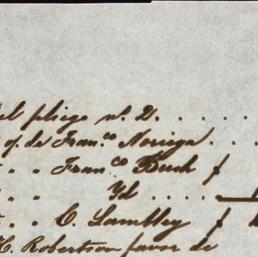 el pliego nº. 2. . . . .
q. de Fran.co Noriega . . .
" " Fran.co Buch f
" " Yd . . . . .
" " C. Lambley f
C. Robertson favor de